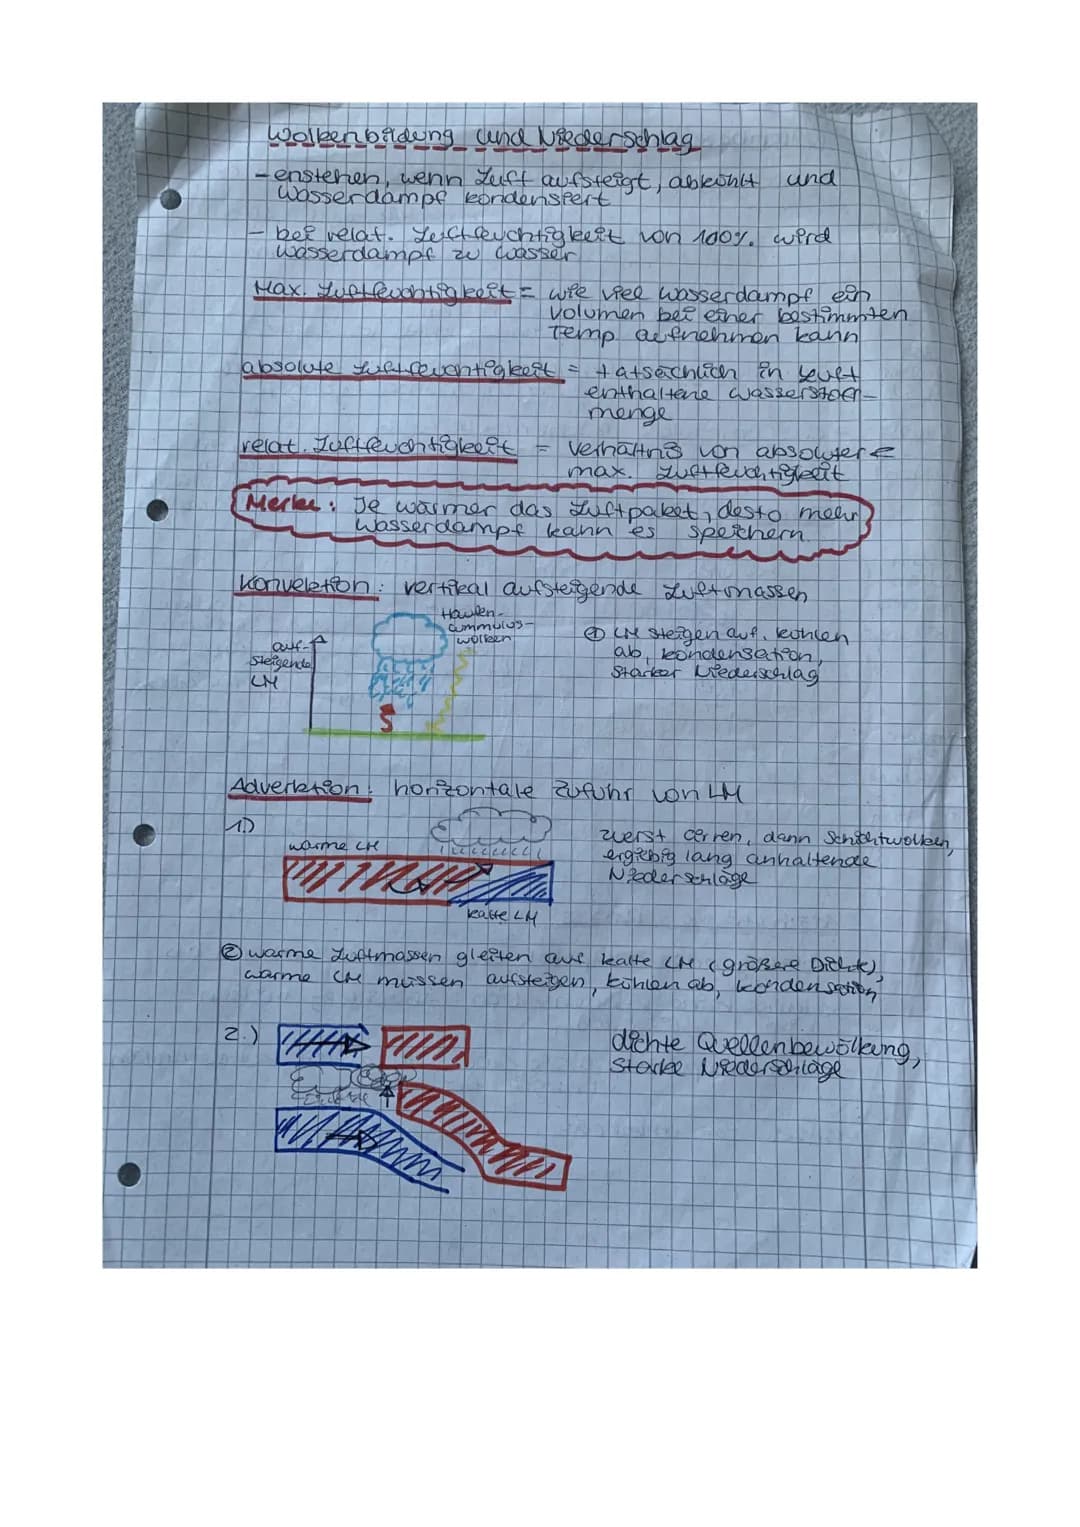 Wolkenbildung und Niederschlag
- enstehen, wenn Luft aufsteigt, abkühlt und
Wasserdampf kondensiert
- bei relat. Luftfeuchtigkeit von 100% wird
Wasserdampf zu Wasser
Max. Luftfeuchtigkeit = wie viel Wasserdampf ein
Volumen bei einer bestimmten
Temp. aufnehmen kann
absolute Luftfeuchtigkeit = tatsächlich in Luft
enthaltene
menge
relat. Luftfeuchtigkeit = Verhältnis von absoluter &
max. Luftfeuchtigkeit
Merke: Je wärmer das Luftpaket, desto mehr
Wasserdampf kann es speichern
Konvektion: vertikal aufsteigende Luftmassen
Haufen-
cummulus-
wolken
auf-
steigende
LM
① LM steigen auf, kühlen
ab, kondensation,
starker Niederschlag
Advektion: horizontale Zufuhr von LM
1.)
warme LM
kalte LM
zuerst Cirren, dann Schichtwolken,
ergiebig lang anhaltende
Niederschläge
② warme Luftmassen gleiten auf kalte LM (größere Dichte),
warme LM müssen aufsteigen, kühlen ab, kondensation
2.)
dichte Quellenbewölkung,
starke Niederschläge